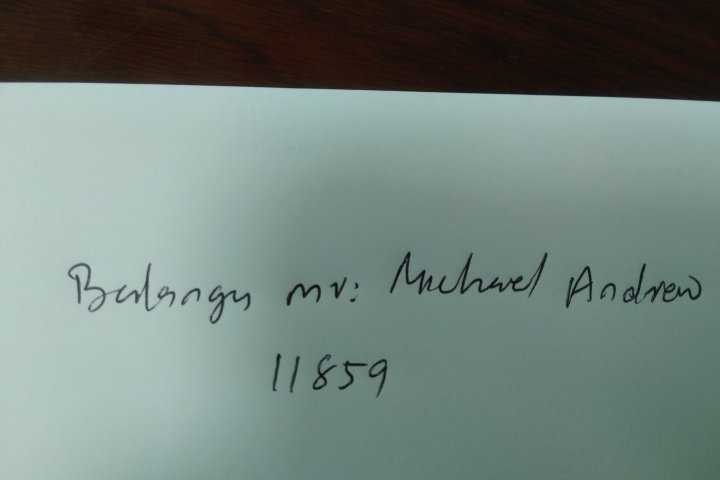 mr: Michael Andrew
11859